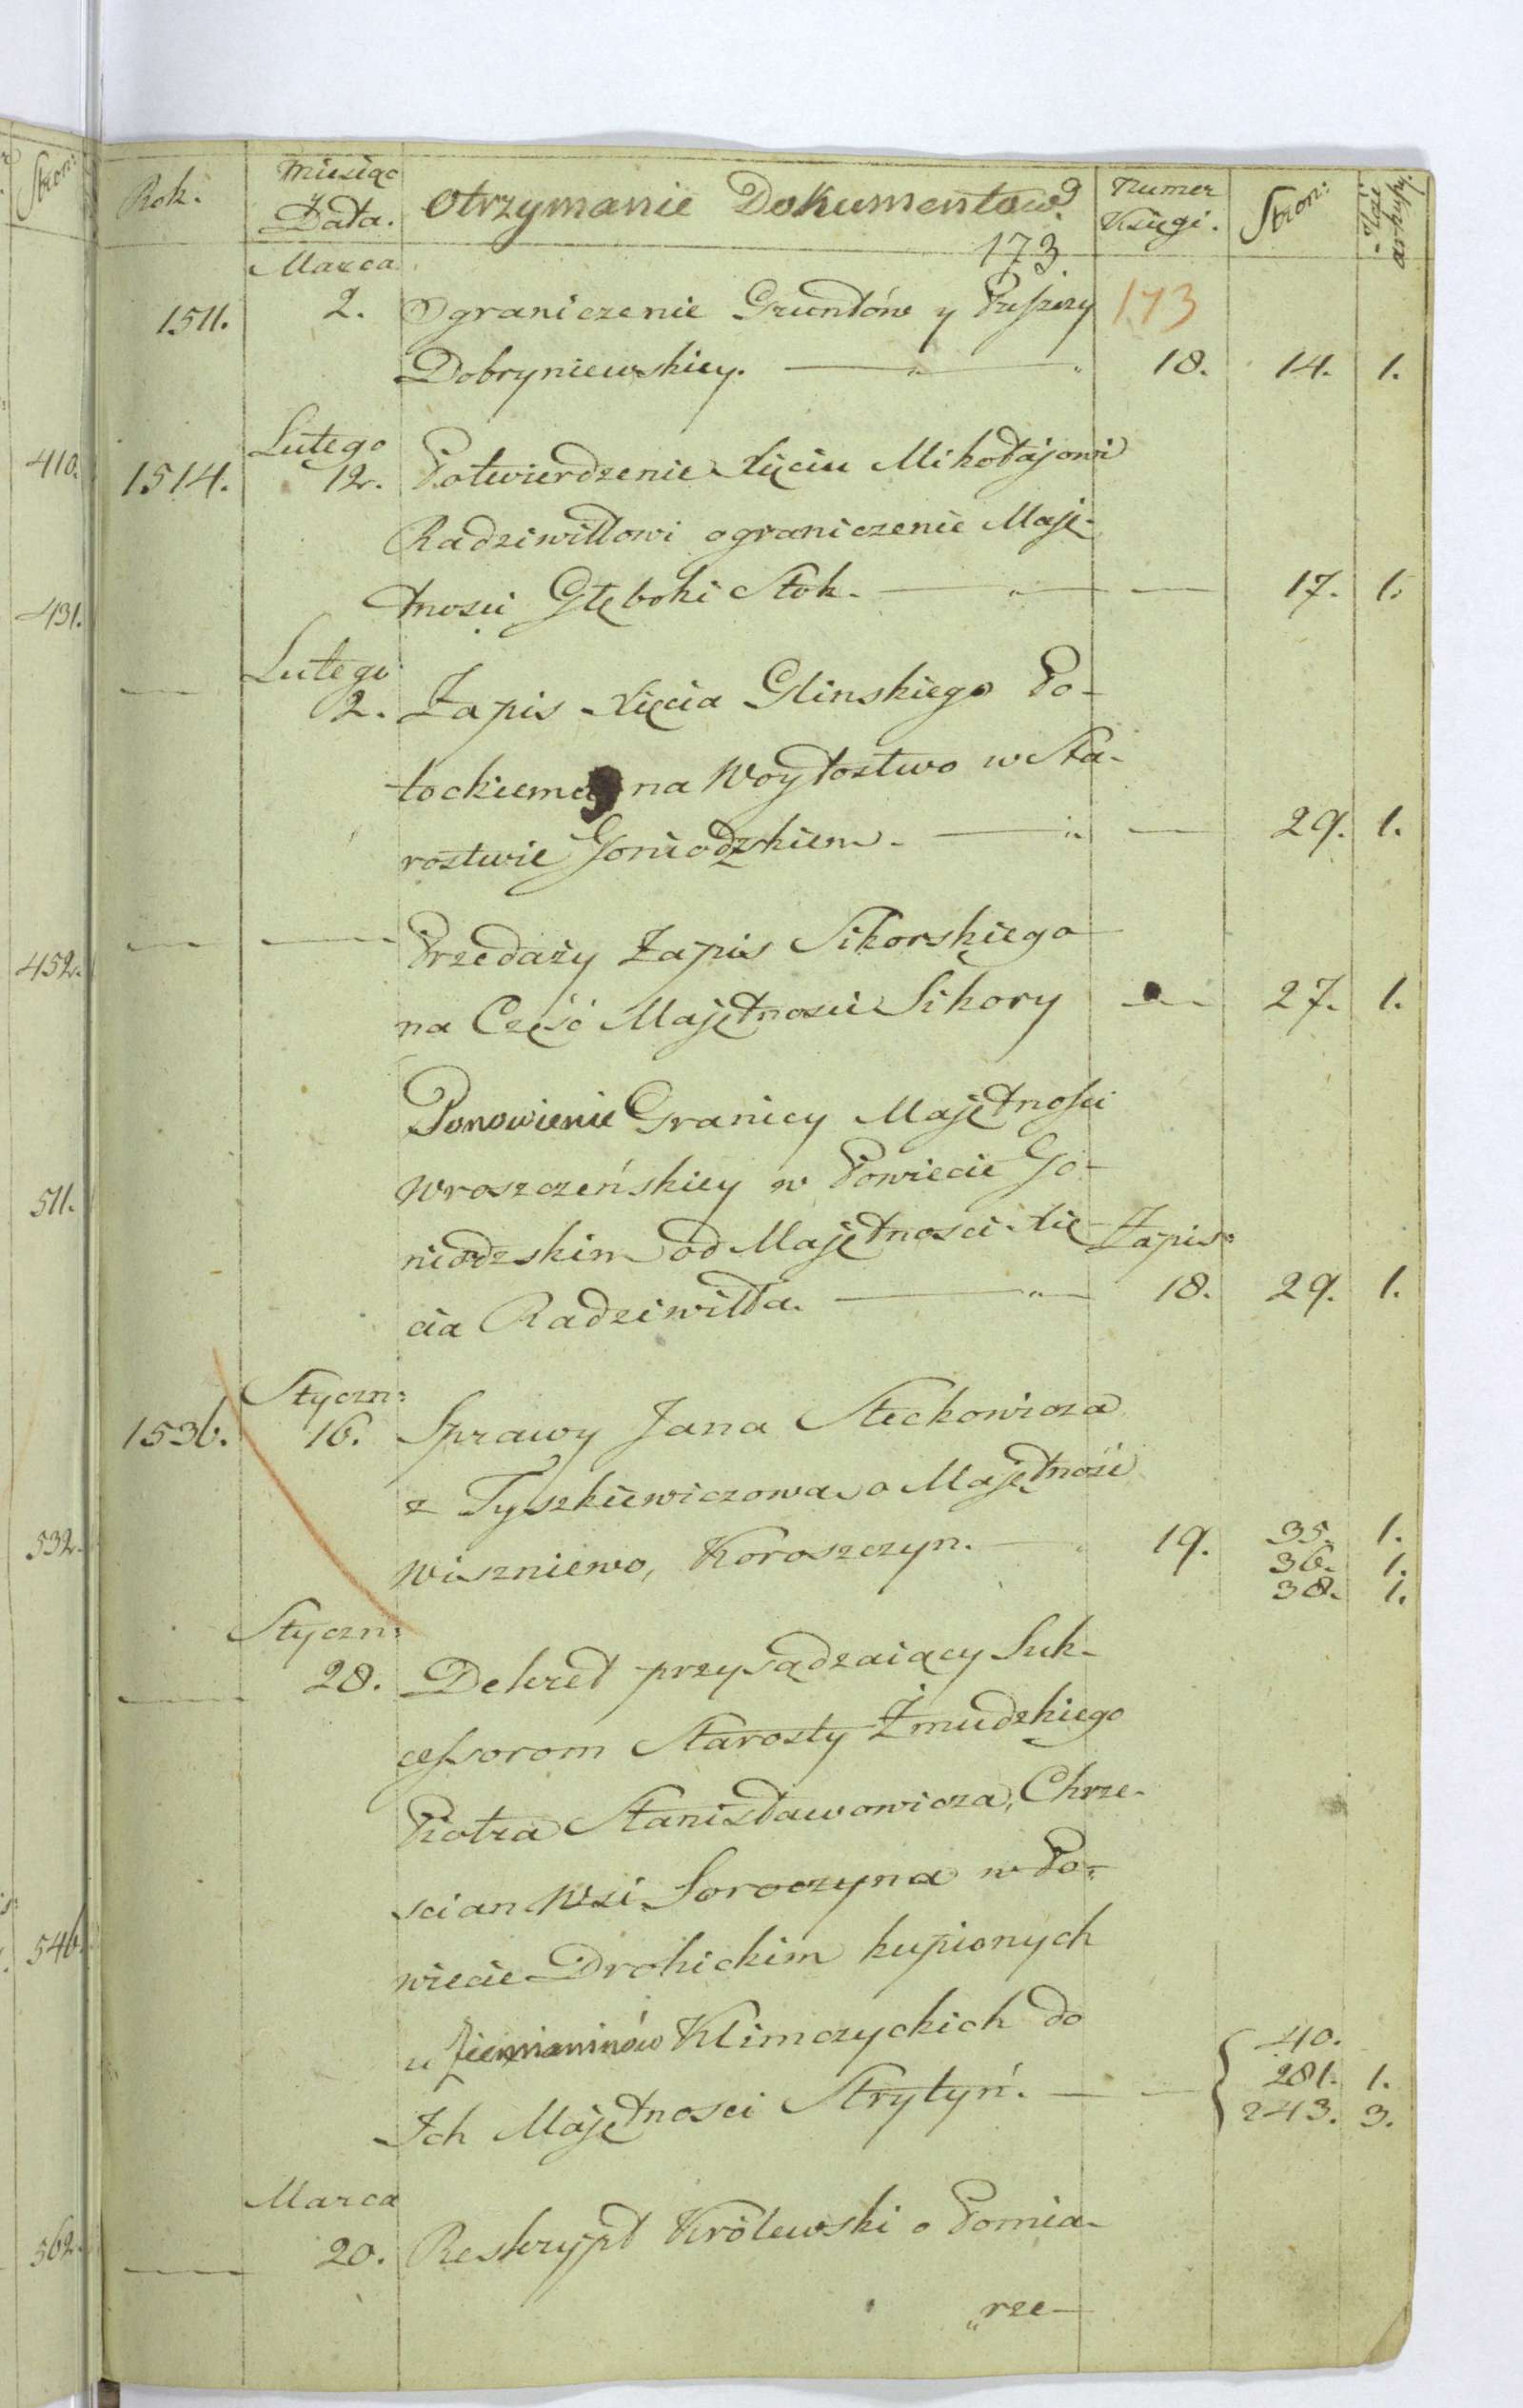 Stron:
410.
431.
452.
511.
532.
546.
562.
Rok. Miesiąc y Data. Otrzymanie Dokumentow. Numer Księgi. Stron: Ilość arkuszy.
173
Marca
1511. 2. Ograniczenie Gruntów y Puszczy 173
Dobryniewskiey. 18. 14. 1.
Lutego
1514. 12. Potwierdzenie Xięciu Mikołajowi
Radziwiłłowi ograniczenie Maję-
tnosci Głęboki Stok. — — 17. 1.
Lutego
— 2. Zapis Xięcia Glinskiego Po-
tockiemu na Woytostwo w Sta-
rostwie Goniodzskiem. — — 29. 1.
— — Przedaży Zapis Sikorskiego
na Część Majętnosci Sikory — 27. 1.
Ponowienie Granicy Majętnosci
Wroszczeńskiey w Powiecie Go-
niodzskim od Majętnosci Xię- Zapis:
cia Radziwiłła. — 18. 29. 1.
Styczn:
1536. 16. Sprawy Jana Steckowicza
z Tyszkiewiczowa o Majętność
Wiszniewo, Koroszczyn. — 19. 35. 1.
36. 1.
38. 1.
Styczn:
— 28. Dekret przysądzaiący Suk-
cessorom Starosty Żmudzkiego
Piotra Stanisławowicza, Chrze-
scian Wsi Soroczyna w Po-
wiecie Drohickim kupionych
u Ziemianinów Klimczyckich do
Ich Majętnosci Strytyń. — — 40.
281. 1.
243. 3.
Marca
— 20. Reskrypt Królewski o Pomia-
„rze—